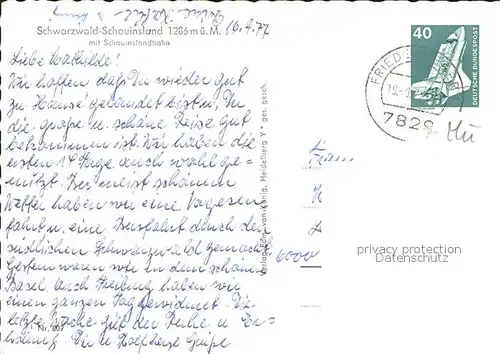 Schwarzwald-Schauinsland 1286 m ü. M.
mit Schauinslandbahn
16.9.77
Liebe Mathilde!
Wir hoffen daß Du wieder gut
zu Hause gelandet bist u. Dir
die große u. schöne Reise gut
bekommen ist. Wir haben die
ersten 14 Tage auch wohl ge-
nützt. Bei meist schönem
Wetter haben wir eine Vogesen
fahrt u. eine Busfahrt durch den
südlichen Schwarzwald gemacht.
Gestern waren wir in dem schönen
Basel auch Freiburg haben wir
einen ganzen Tag gewidmet. Die
letzte Woche gilt der Ruhe u. Er-
holung. Grüße
Nr. 807
Heidelberg ges. gesch.
40
DEUTSCHE BUNDESPOST
7829
6000
privacy protection
Datenschutz